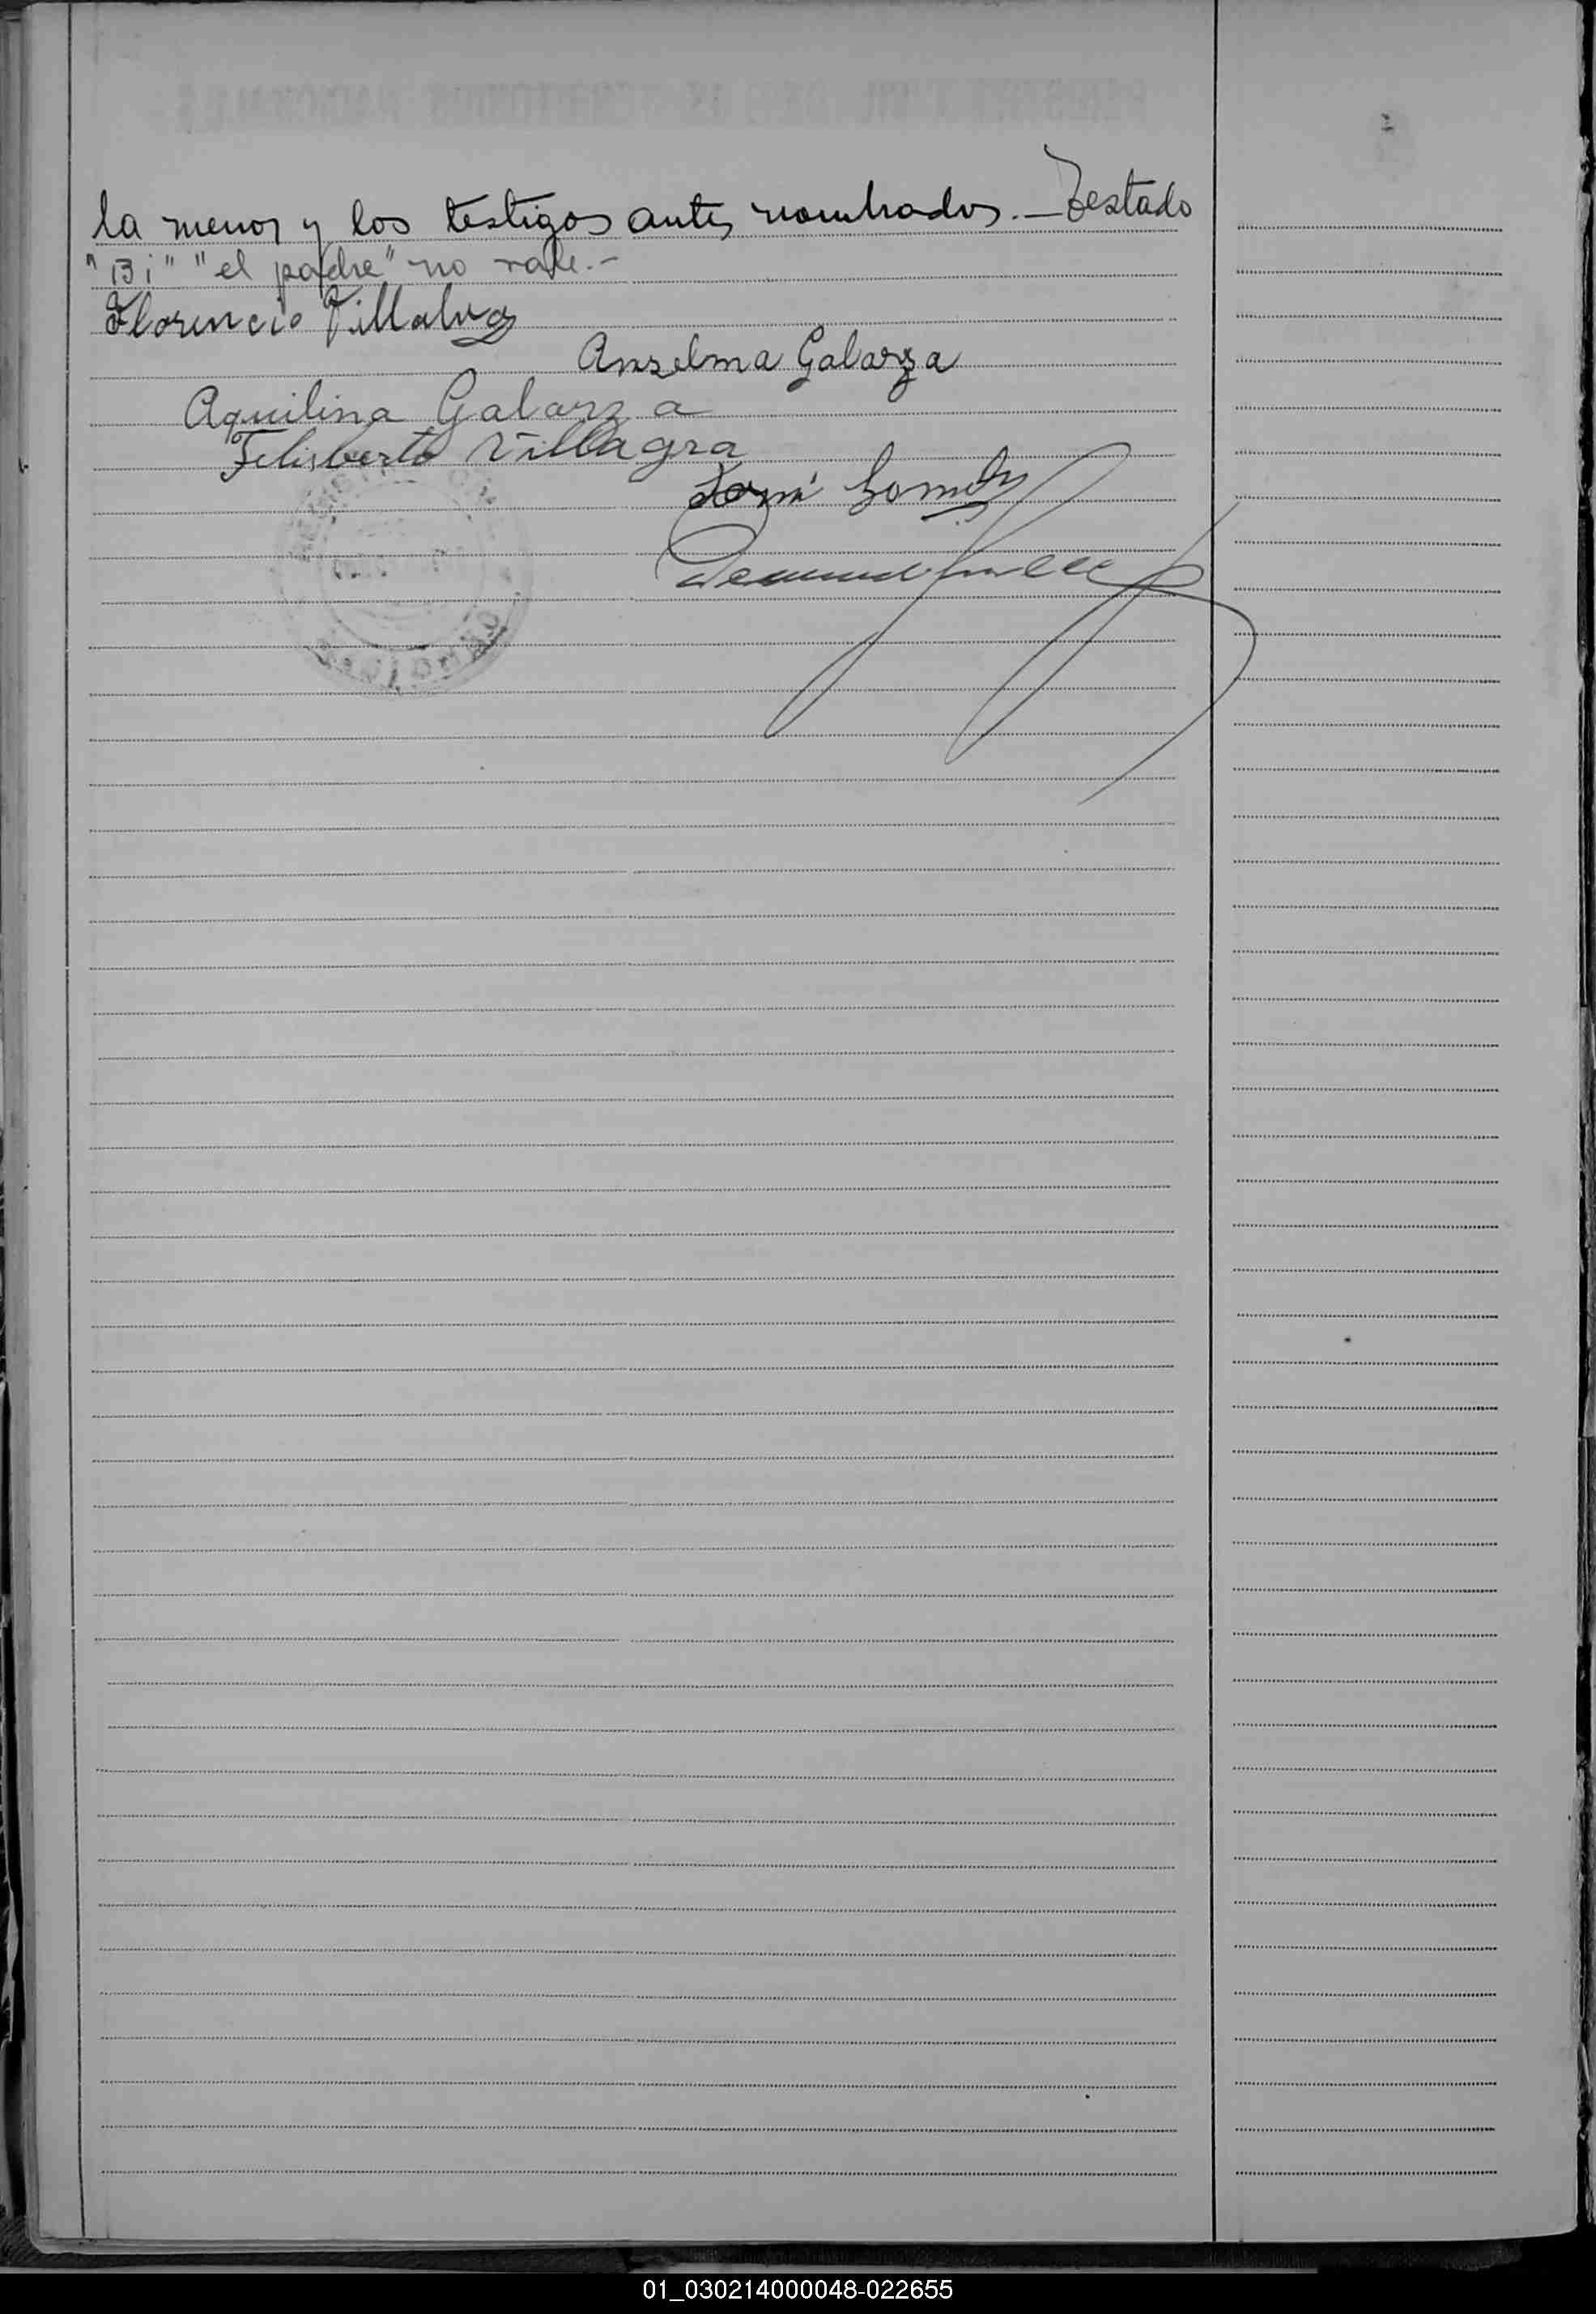 la menor y los testigos antes nombrados.— Testado
"Bi" "el padre" no vale.-
Florencio Villalva
Anselma Galarza
Aquilina Galarza
Felisberto Villagra
José Gomez
01_030214000048-022655